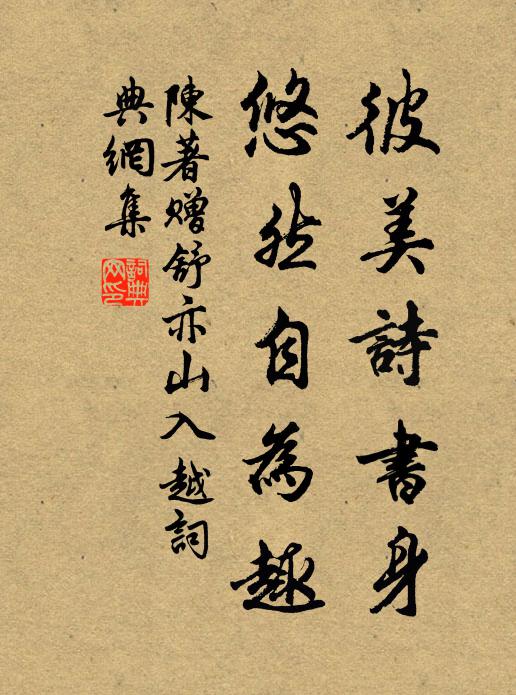 彼美詩書身
悠然自為趣
陳著贈舒亦山入越詞
典網集
詞典網印